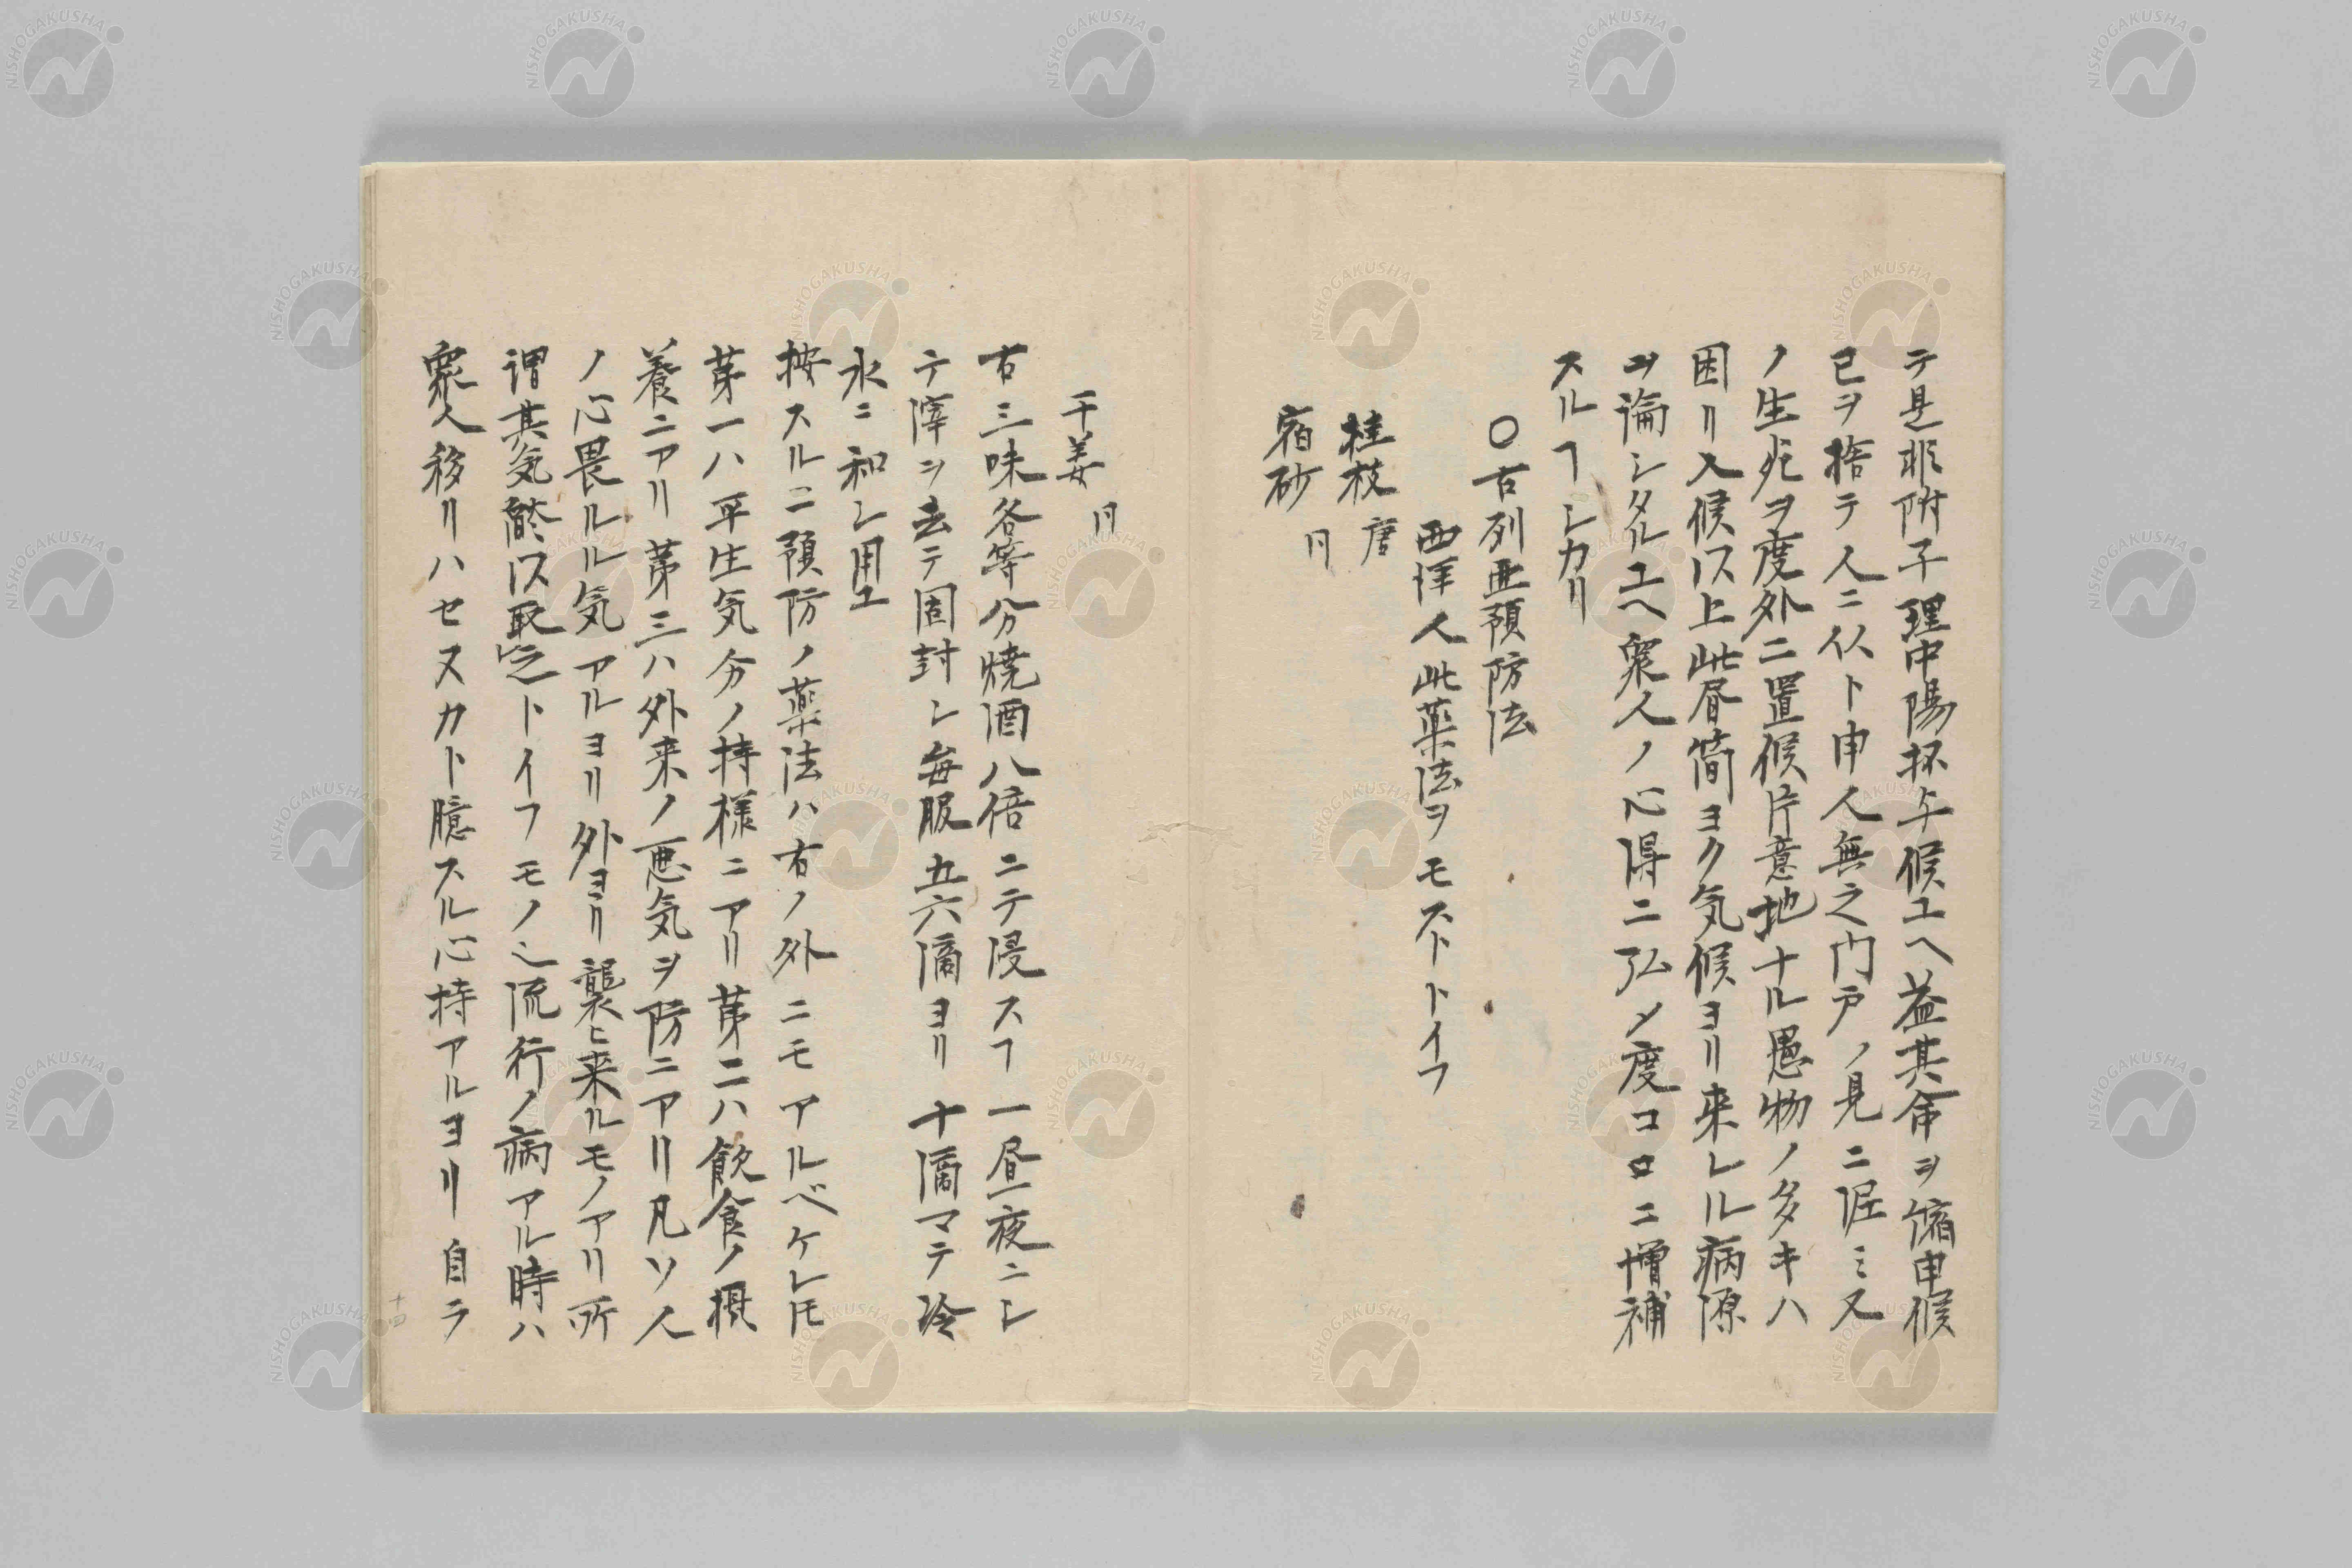 テ是非附子理中陽抔与候ユヘ益其命ヲ縮申候
已ヲ捨テ人ニ从ト申人無之門戸ノ見ニ泥ミ又
ノ生死ヲ度外ニ置候片意地ナル愚物ノ多キハ
困リ入候以上此昼簡ヨク気候ヨリ来レル病源
ヲ論シタルユヘ衆人ノ心得ニ弘メ度コロニ増補
スルヿシカリ
〇古列亜預防法
西洋人此薬法ヲモストトイフ
桂枝 唐
宿砂 同
干姜 同
右三味各等分焼酒八倍ニテ浸スヿ一昼一夜ニシ
テ滓ヲ去テ固封シ毎服五六滴ヨリ十滴マテ冷
水ニ和シ用ユ
按スルニ預防ノ薬法ハ右ノ外ニモアルベケレ𪜈
第一ハ平生気分ノ持様ニアリ第二ハ飲食ノ摂
養ニアリ第三ハ外来ノ悪気ヲ防ニアリ凡ソ人
ノ心畏ルル気アルヨリ外ヨリ襲ヒ来ルモノアリ所
謂其気餒以取之トイフモノ也流行ノ病アル時ハ
衆人移リハセヌカト臆スル心持アルヨリ自ラ
十四
NISHOGAKUSHA